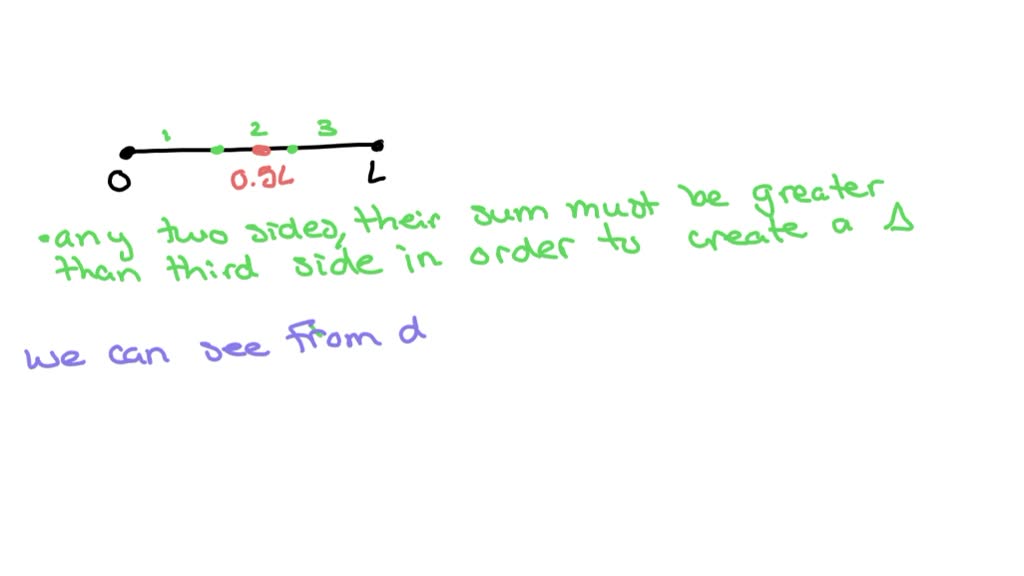 1 2 3
O 0.5L L
•any two sides, their sum must be greater
than third side in order to create a Δ
we can see from d